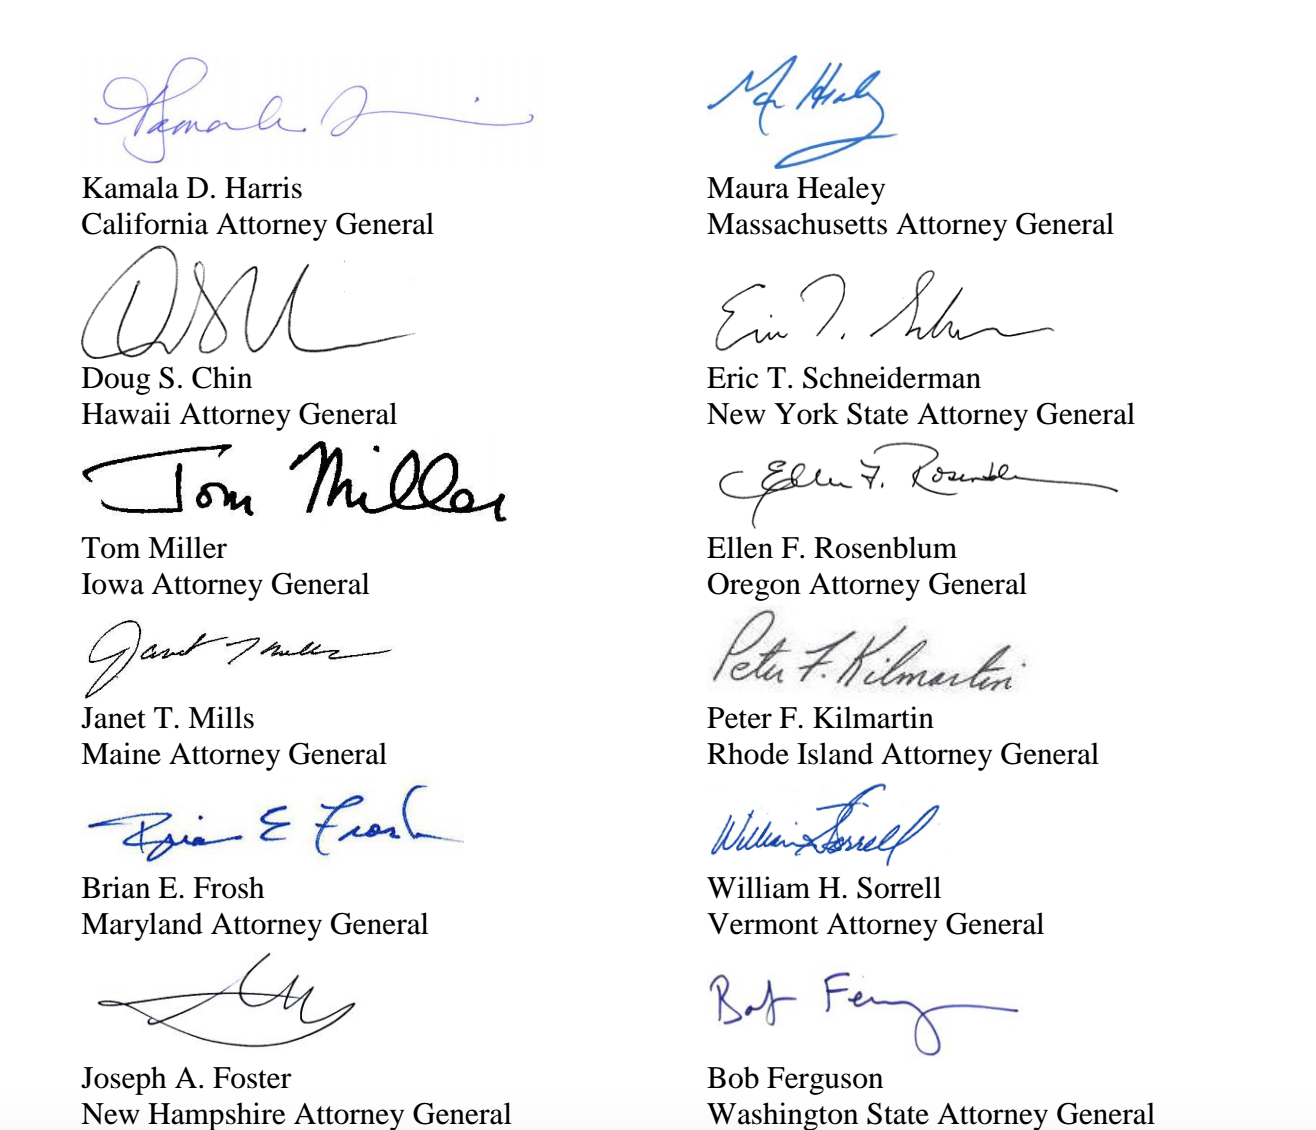 Kamala D. Harris
Kamala D. Harris
California Attorney General
Maura Healey
Massachusetts Attorney General
Doug S. Chin
Hawaii Attorney General
Eric T. Schneiderman
New York State Attorney General
Tom Miller
Tom Miller
Iowa Attorney General
Ellen F. Rosenblum
Ellen F. Rosenblum
Oregon Attorney General
Janet T. Mills
Janet T. Mills
Maine Attorney General
Peter F. Kilmartin
Peter F. Kilmartin
Rhode Island Attorney General
Brian E Frosh
Brian E. Frosh
Maryland Attorney General
William H. Sorrell
William H. Sorrell
Vermont Attorney General
Joseph A. Foster
New Hampshire Attorney General
Bob Ferguson
Washington State Attorney General